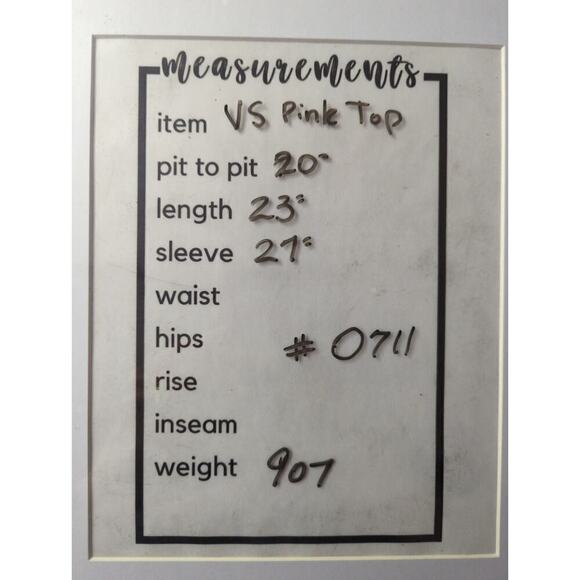 measurements
item VS Pink Top
pit to pit 20"
length 23"
sleeve 27"
waist
hips # 0711
rise
inseam
weight 907